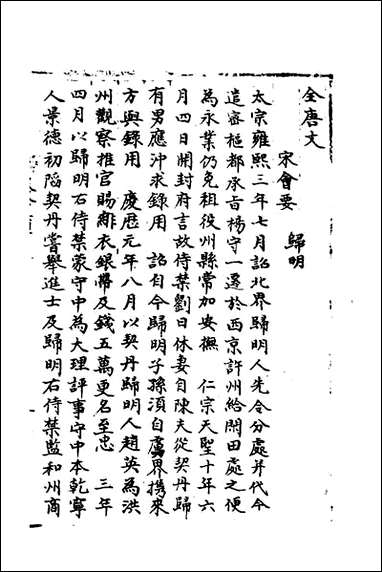 全唐文
宋會要
歸明
太宗雍熙三年七月詔北界歸明人先令分處并代今
遣樞都承旨楊守一遷於西京許州給閒田處之便
為永業仍免租役州縣常加安撫　仁宗天聖十年六
月四日開封府言故侍禁劉日休妻自陳夫從契丹歸
有男應沖求錄用　詔自今歸明子孫須自虜界攜來
方與錄用　慶曆元年八月以契丹歸明人趙英為洪
州觀察推官賜緋衣銀帶及錢五萬更名至忠　三年
四月以歸明右侍禁蒙守中為大理評事守中本乾寧
人景德初陷契丹嘗舉進士及歸明右侍禁監和州商